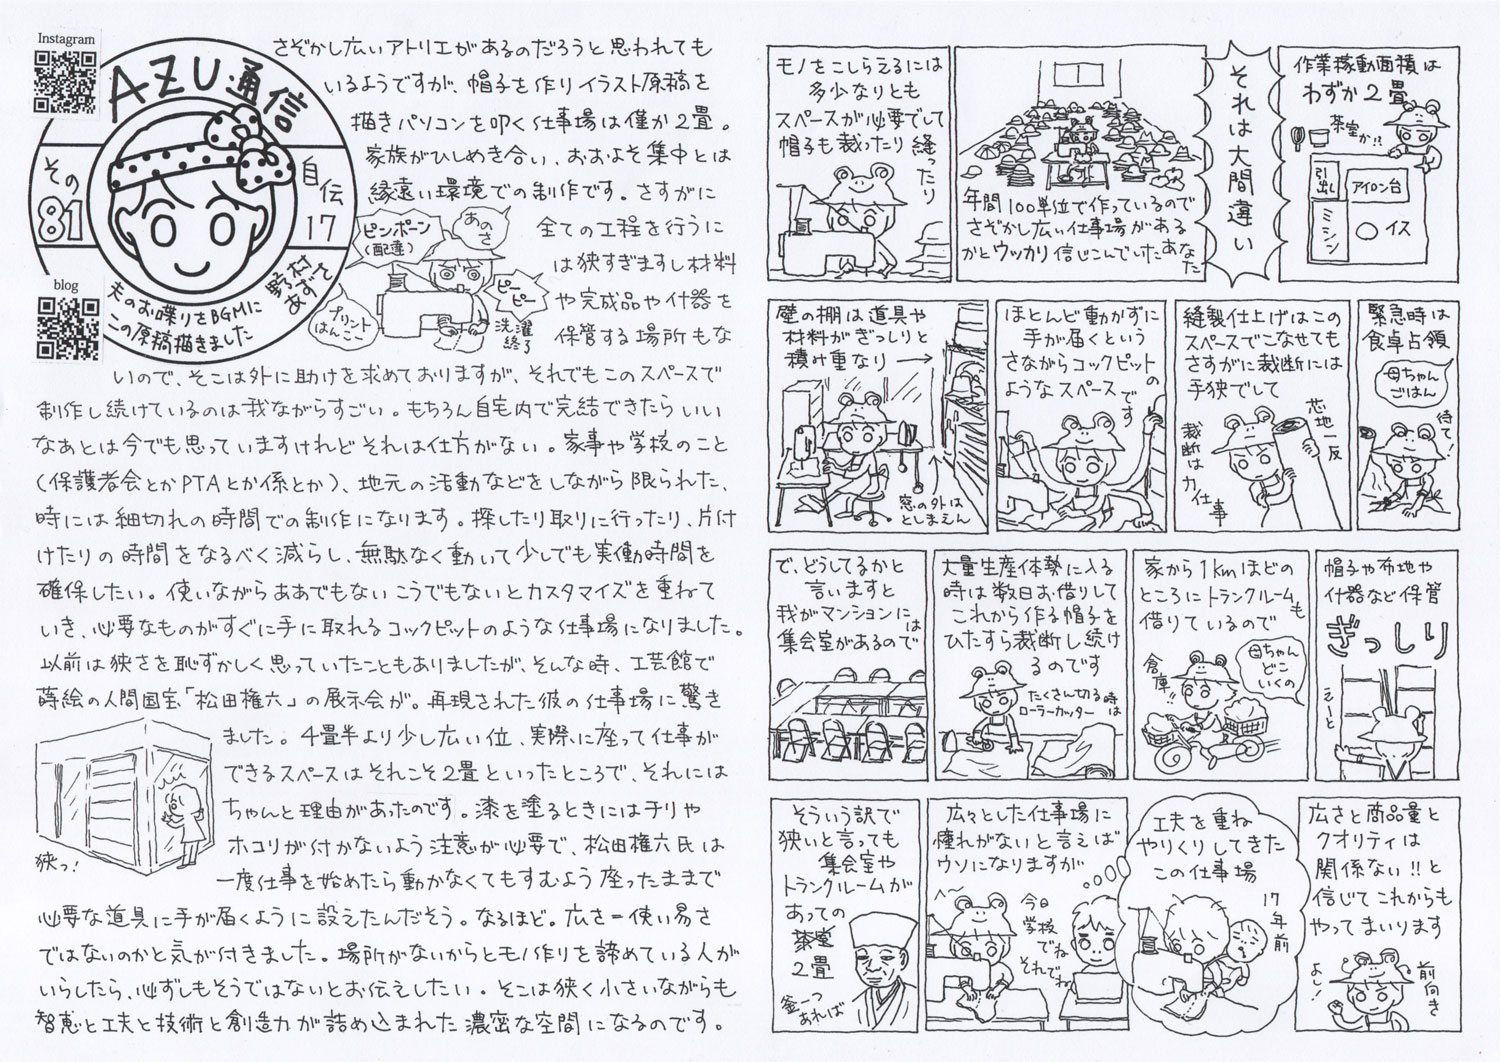 Instagram
AZU通信
その81
自伝17
野村あずさ
夫のお喋りをBGMに
この原稿描きました
blog
さぞかし広いアトリエがあるのだろうと思われても
いるようですが、帽子を作りイラスト原稿を
描きパソコンを叩く仕事場は僅か2畳。
家族がひしめき合い、おおよそ集中とは
縁遠い環境での制作です。さすがに
全ての工程を行うに
は狭すぎますし材料
や完成品や什器を
保管する場所もな
ピンポーン
(配達)
あのさ
ピーピー
洗濯終了
プリント
はんこ
いので、そこは外に助けを求めておりますが、それでもこのスペースで
制作し続けているのは我ながらすごい。もちろん自宅内で完結できたらいい
なあとは今でも思っていますけれどそれは仕方がない。家事や学校のこと
(保護者会とかPTAとか係とか)、地元の活動などをしながら限られた、
時には細切れの時間での制作になります。探したり取りに行ったり、片付
けたりの時間をなるべく減らし、無駄なく動いて少しでも実働時間を
確保したい。使いながらああでもないこうでもないとカスタマイズを重ねて
いき、必要なものがすぐに手に取れるコックピットのような仕事場になりました。
以前は狭さを恥ずかしく思っていたこともありましたが、そんな時、工芸館で
蒔絵の人間国宝「松田権六」の展示会が。再現された彼の仕事場に驚き
ました。4畳半より少し広い位、実際に座って仕事が
できるスペースはそれこそ2畳といったところで、それには
ちゃんと理由があったのです。漆を塗るときにはチリや
ホコリが付かないよう注意が必要で、松田権六氏は
一度仕事を始めたら動かなくてもすむよう座ったままで
必要な道具に手が届くように設えたんだそう。なるほど。広さ=使い易さ
ではないのかと気が付きました。場所がないからとモノ作りを諦めている人が
いらしたら、必ずしもそうではないとお伝えしたい。そこは狭く小さいながらも
智恵と工夫と技術と創造力が詰め込まれた濃密な空間になるのです。
狭っ!
モノをこしらえるには
多少なりとも
スペースが必要でして
帽子も裁ったり縫ったり
年間100単位で作っているので
さぞかし広い仕事場がある
かとウッカリ信じこんでいたあなた
それは大間違い
作業稼動面積は
わずか2畳
茶室か!!
引出し
アイロン台
ミシン
イス
壁の棚は道具や
材料がぎっしりと
積み重なり
窓の外は
としまえん
ほとんど動かずに
手が届くという
さながらコックピットの
ようなスペースです
縫製仕上げはこの
スペースでこなせても
さすがに裁断には
手狭でして
芯地一反
裁断は力仕事
緊急時は
食卓占領
母ちゃん
ごはん
待て!
で、どうしてるかと
言いますと
我がマンションには
集会室があるので
大量生産体勢に入る
時は数日お借りして
これから作る帽子を
ひたすら裁断し続け
るのです
たくさん切る時は
ローラーカッター
家から1kmほどの
ところにトランクルームも
借りているので
倉庫!!
母ちゃん
どこ
いくの
帽子や布地や
什器など保管
ぎっしり
そういう訳で
狭いと言っても
集会室や
トランクルームが
あっての
茶室
2畳
釜一つ
あれば
広々とした仕事場に
憧れがないと言えば
ウソになりますが
へ〜
今日
学校
でね
それでね
工夫を重ね
やりくりしてきた
この仕事場
17年前
広さと商品量と
クオリティは
関係ない!!と
信じてこれからも
やってまいります
よし!
前向き